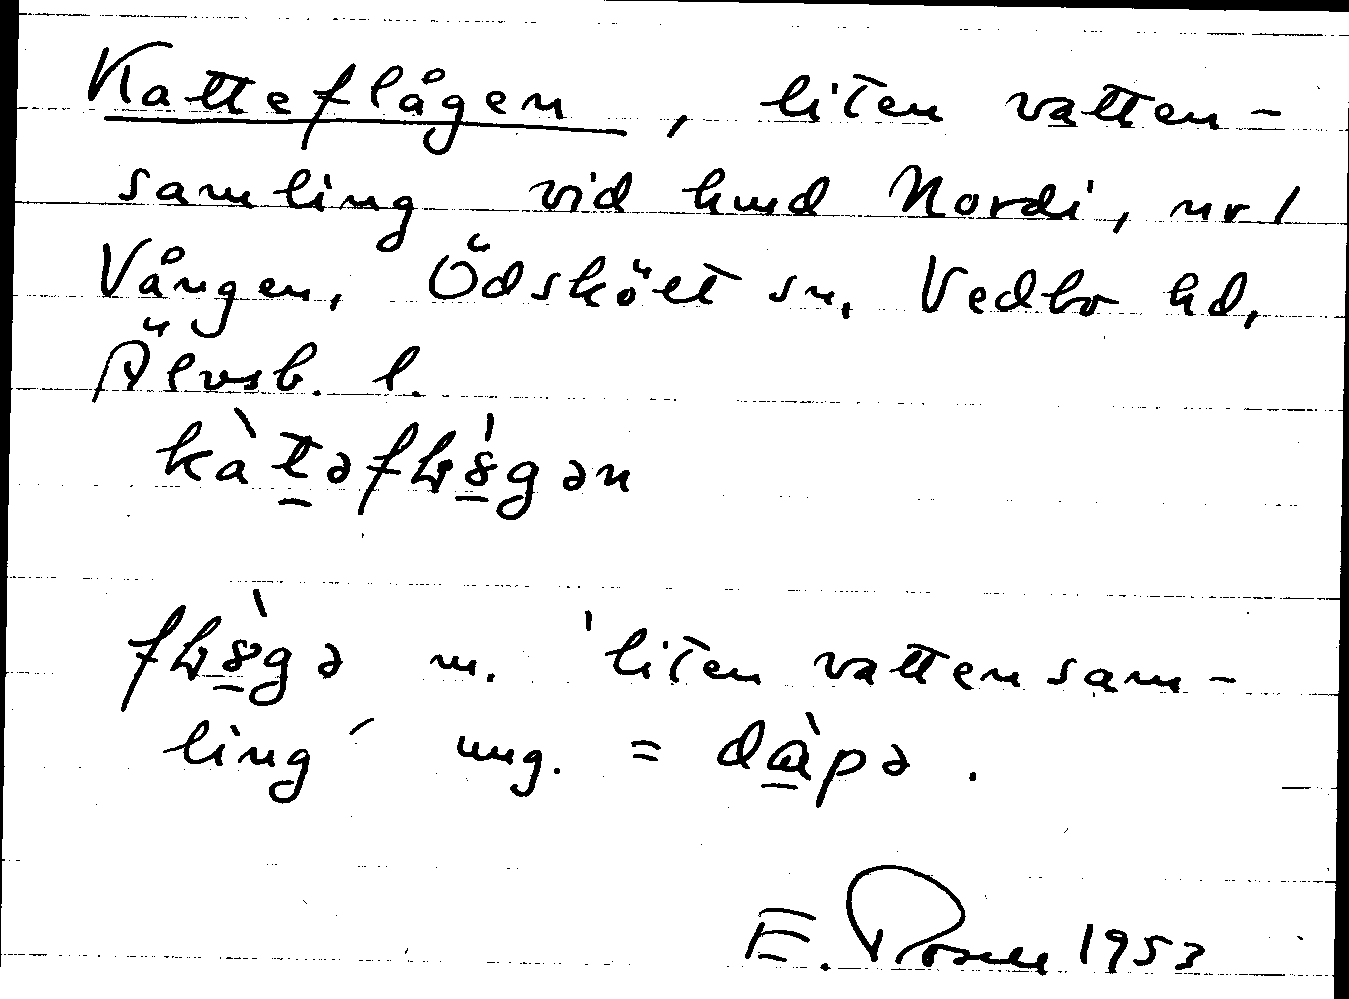 Katteflågen, liten vatten-
samling vid hmd Nordi, nr 1
Vången, Ödskölt sn, Vedbo hd,
Älvsb. l.
kàt̲əfɫ8̲́gən
fɫ8̲̀gə m. 'liten vattensam-
ling' ung. = dɑ̲̀pə.
E. 1953